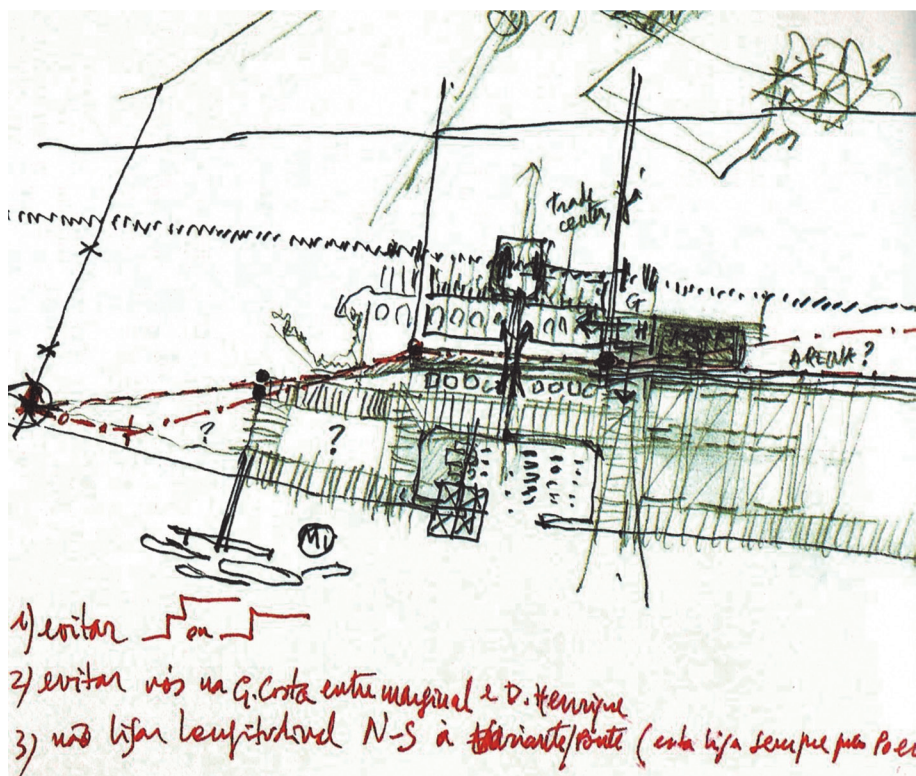 trade
center, já
G
H
ARENA?
?
?
M1
1) evitar ou
2) evitar nós na G. Costa entre marginal e D. Henrique
3) não ligar longitudinal N-S à variante/ponte (esta liga sempre